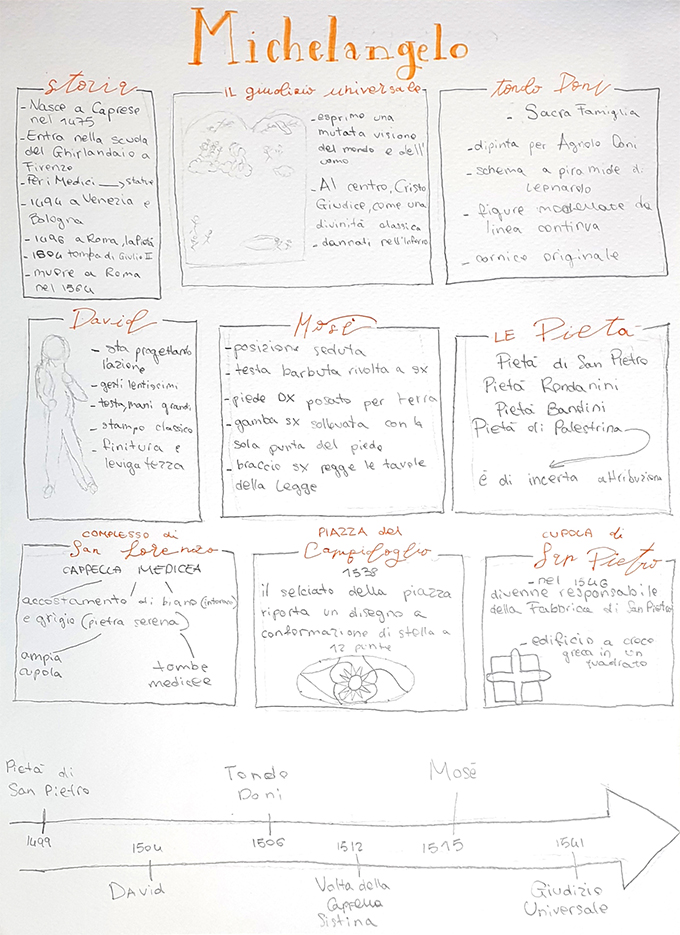 Michelangelo
storia
- Nasce a Caprese
nel 1475
- Entra nella scuola
del Ghirlandaio a
Firenze
- Per i Medici → statue
- 1494 a Venezia e
Bologna
- 1496 a Roma, la Pietà
- 1504 tomba di Giulio II
- muore a Roma
nel 1564
IL giudizio universale
- esprime una
mutata visione
del mondo e dell'
uomo
- Al centro, Cristo
Giudice, come una
divinità classica
- dannati nell'Inferno
tondo Doni
- Sacra Famiglia
- dipinta per Agnolo Doni
- schema a piramide di
Leonardo
- figure modellate da
linea continua
- cornice originale
David
- sta progettando
l'azione
- gesti lentissimi
- testa, mani grandi
- stampo classico
- finitura e
levigatezza
Mosè
- posizione seduta
- testa barbuta rivolta a sx
- piede DX posato per terra
- gamba sx sollevata con la
sola punta del piede
- braccio sx regge le tavole
della Legge
LE Pietà
Pietà di San Pietro
Pietà Rondanini
Pietà Bandini
Pietà di Palestrina
è di incerta attribuzione
COMPLESSO di
San Lorenzo
CAPPELLA MEDICEA
accostamento di biano (intonaco)
e grigio (pietra serena)
ampia
cupola
tombe
medicee
PIAZZA del
Campidoglio
1538
il selciato della piazza
riporta un disegno a
conformazione di stella a
12 punte
CUPOLA di
San Pietro
- nel 1546
divenne responsabile
della Fabbrica di San Pietro
- edificio a croce
greca in un
quadrato
Pietà di
San Pietro
Tondo
Doni
Mosè
1499
1504
1506
1512
1515
1541
David
Volta della
Cappella
Sistina
Giudizio
Universale